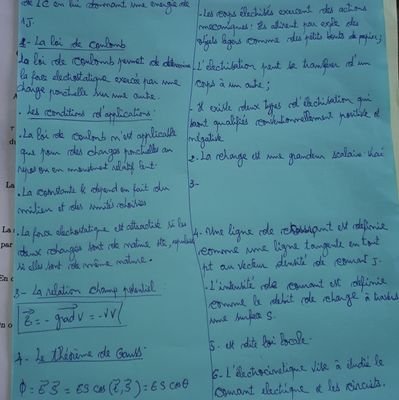 de 1C en lui donnant une énergie de
1J.
2- La loi de coulomb
La loi de coulomb permet de détermine
la force electrostatique exercée par une
charge ponctuelle sur une autre.
. Les conditions d'applications:
. La loi de coulomb n'est applicable
que pour des charges ponctuelles au
repos ou en mouvement relatif lent.
. La constante k dépend en fait du
milieu et des unités choisies
. La force électrostatique est attractive si les
deux charges sont de nature
si elles sont de même nature.
3- La relation champ potentiel:
E = -grad V = -∇V
4- Le théorème de Gauss:
Φ = E S = ES cos(E, S) = ES cos θ
- Les corps électrisés exercent des actions
mécaniques: Ils attirent par exple des
objets légers comme des petits bouts de papier;
L'électrisation peut se transférer d'un
corps à un autre;
- Il existe deux types d'électrisation qui
sont qualifiés conventionnellement positive et
négative
2. La charge est une grandeur scalaire
3-
4- Une ligne de est définie
comme une ligne tangente en tout
pt au vecteur densité de courant J.
- L'intensité de courant est définie
comme le débit de charge à travers
une surface S.
5- est dite loi locale.
6- L'électrocinétique vise à étudié le
courant électrique et les circuits.
La
La
par
En c
n o